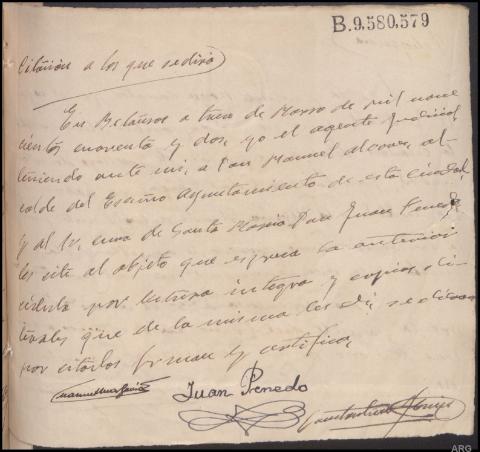 B.9.580,579
Citación a los que se dirá
En Betanzos a trece de Marzo de mil nove
cientos cuarenta y dos, yo el agente judicial,
teniendo ante mi, a Don Manuel al
calde del Excmo Ayuntamiento de esta ciudad,
y al Sr. cura de Santa Maria Don Juan Penedo,
les cité al objeto que expresa la anterior
cédula por lectura integra y copias li
terales que de la misma les di, se dieron
por citados firman y certifico,
Juan Penedo
ARG